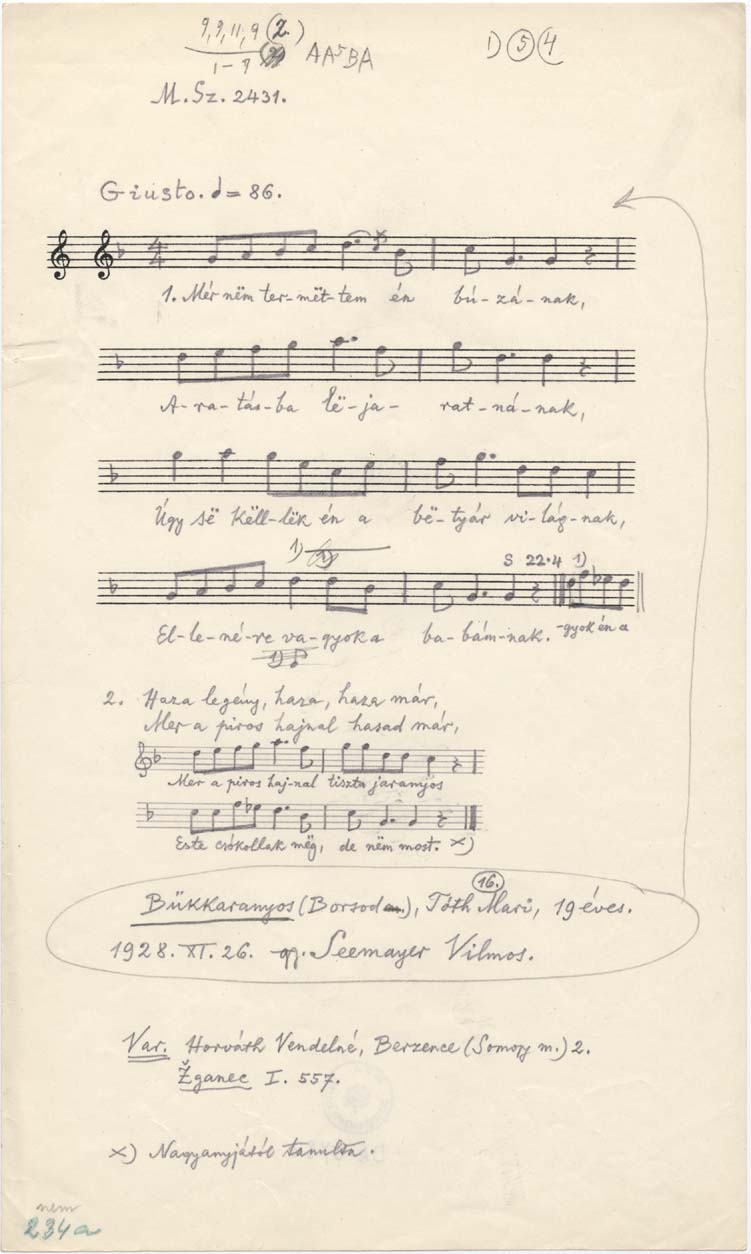 9, 9, 11, 9 (2.)
1-9
AA⁵BA
1) 5 4
M. Sz. 2431.
Giusto. = 86.
4 4
1. Mér nëm ter-mët-tem én bú-zá-nak,
A-ra-tás-ba lë-ja-rat-ná-nak,
Úgy së këll-lëk én a bë-tyár vi-lág-nak,
1)
S 22.4 1)
El-le-né-re va-gyok a ba-bám-nak. -gyok én a
1)
2. Haza legény, haza, haza már,
Mer a piros hajnal hasad már,
Mer a piros haj-nal tiszta jaranyos
Este csókollak mëg, de nëm most. x)
16.
Bükkaranyos (Borsod), Tóth Mari, 19 éves.
1928. XI. 26. gy. Seemayer Vilmos.
Var. Horváth Vendelné, Berzence (Somogy m.) 2.
Žganec I. 557.
x) Nagyanyjától tanulta.
nem
234a